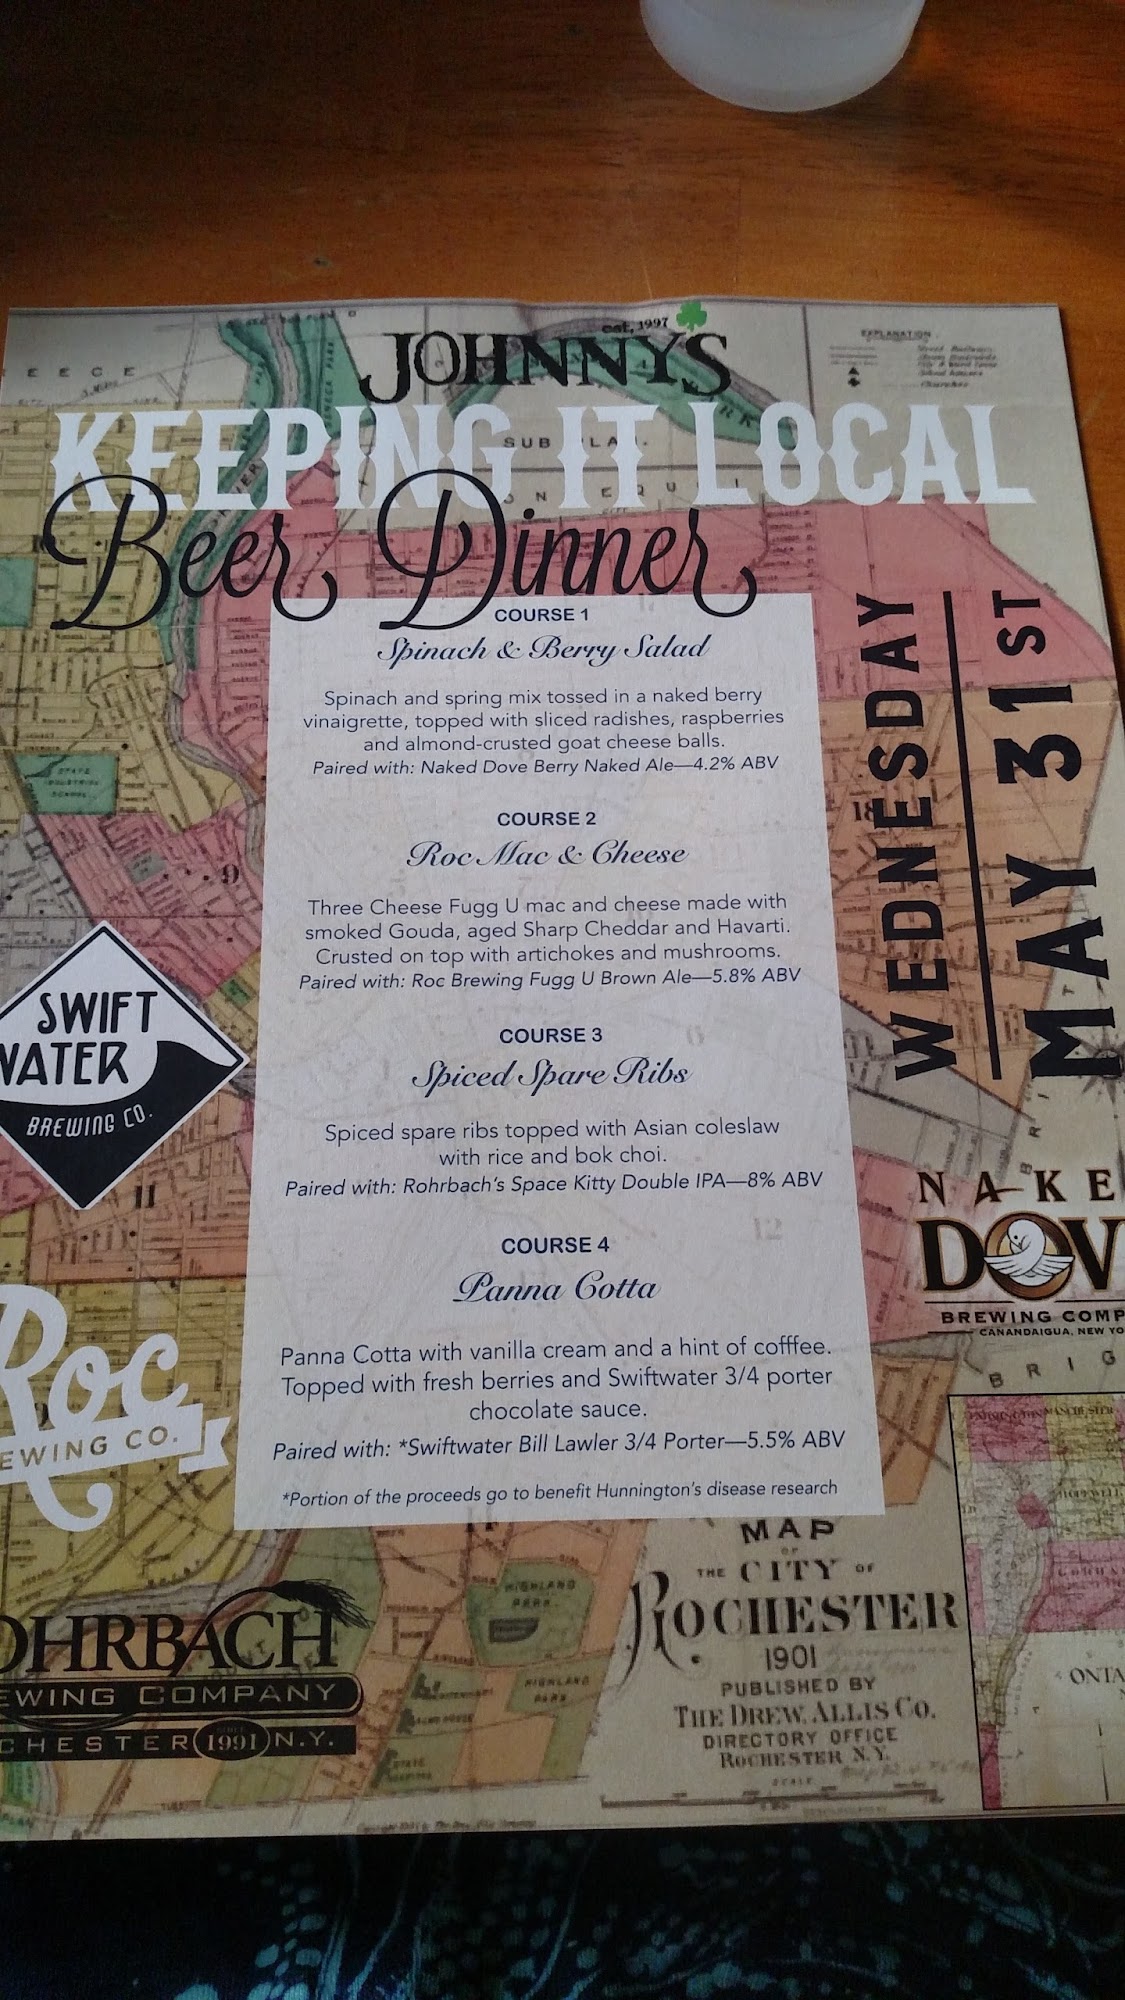 est. 1997
JOHNNY'S
KEEPING IT LOCAL
Beer Dinner
EXPLANATION
Churches
SUB PLAN.
WEDNESDAY
MAY 31ST
COURSE 1
Spinach & Berry Salad
Spinach and spring mix tossed in a naked berry
vinaigrette, topped with sliced radishes, raspberries
and almond-crusted goat cheese balls.
Paired with: Naked Dove Berry Naked Ale—4.2% ABV
COURSE 2
Roc Mac & Cheese
Three Cheese Fugg U mac and cheese made with
smoked Gouda, aged Sharp Cheddar and Havarti.
Crusted on top with artichokes and mushrooms.
Paired with: Roc Brewing Fugg U Brown Ale—5.8% ABV
COURSE 3
Spiced Spare Ribs
Spiced spare ribs topped with Asian coleslaw
with rice and bok choi.
Paired with: Rohrbach's Space Kitty Double IPA—8% ABV
COURSE 4
Panna Cotta
Panna Cotta with vanilla cream and a hint of cofffee.
Topped with fresh berries and Swiftwater 3/4 porter
chocolate sauce.
Paired with: *Swiftwater Bill Lawler 3/4 Porter—5.5% ABV
*Portion of the proceeds go to benefit Hunnington's disease research
STATE
INDUSTRIAL
SCHOOL
9
18
11
12
SWIFT
WATER
BREWING CO.
NAKE
DOV
BREWING COMP
CANANDAIGUA, NEW YO
BRIG
Roc
EWING CO.
OHRBACH
EWING COMPANY
CHESTER SINCE 1991 N.Y.
HIGHLAND
PARK
HIGHLAND
PARK
MAP
OF
THE CITY OF
ROCHESTER
1901
PUBLISHED BY
THE DREW, ALLIS CO.
DIRECTORY OFFICE
ROCHESTER N.Y.
SCALE
ONTA